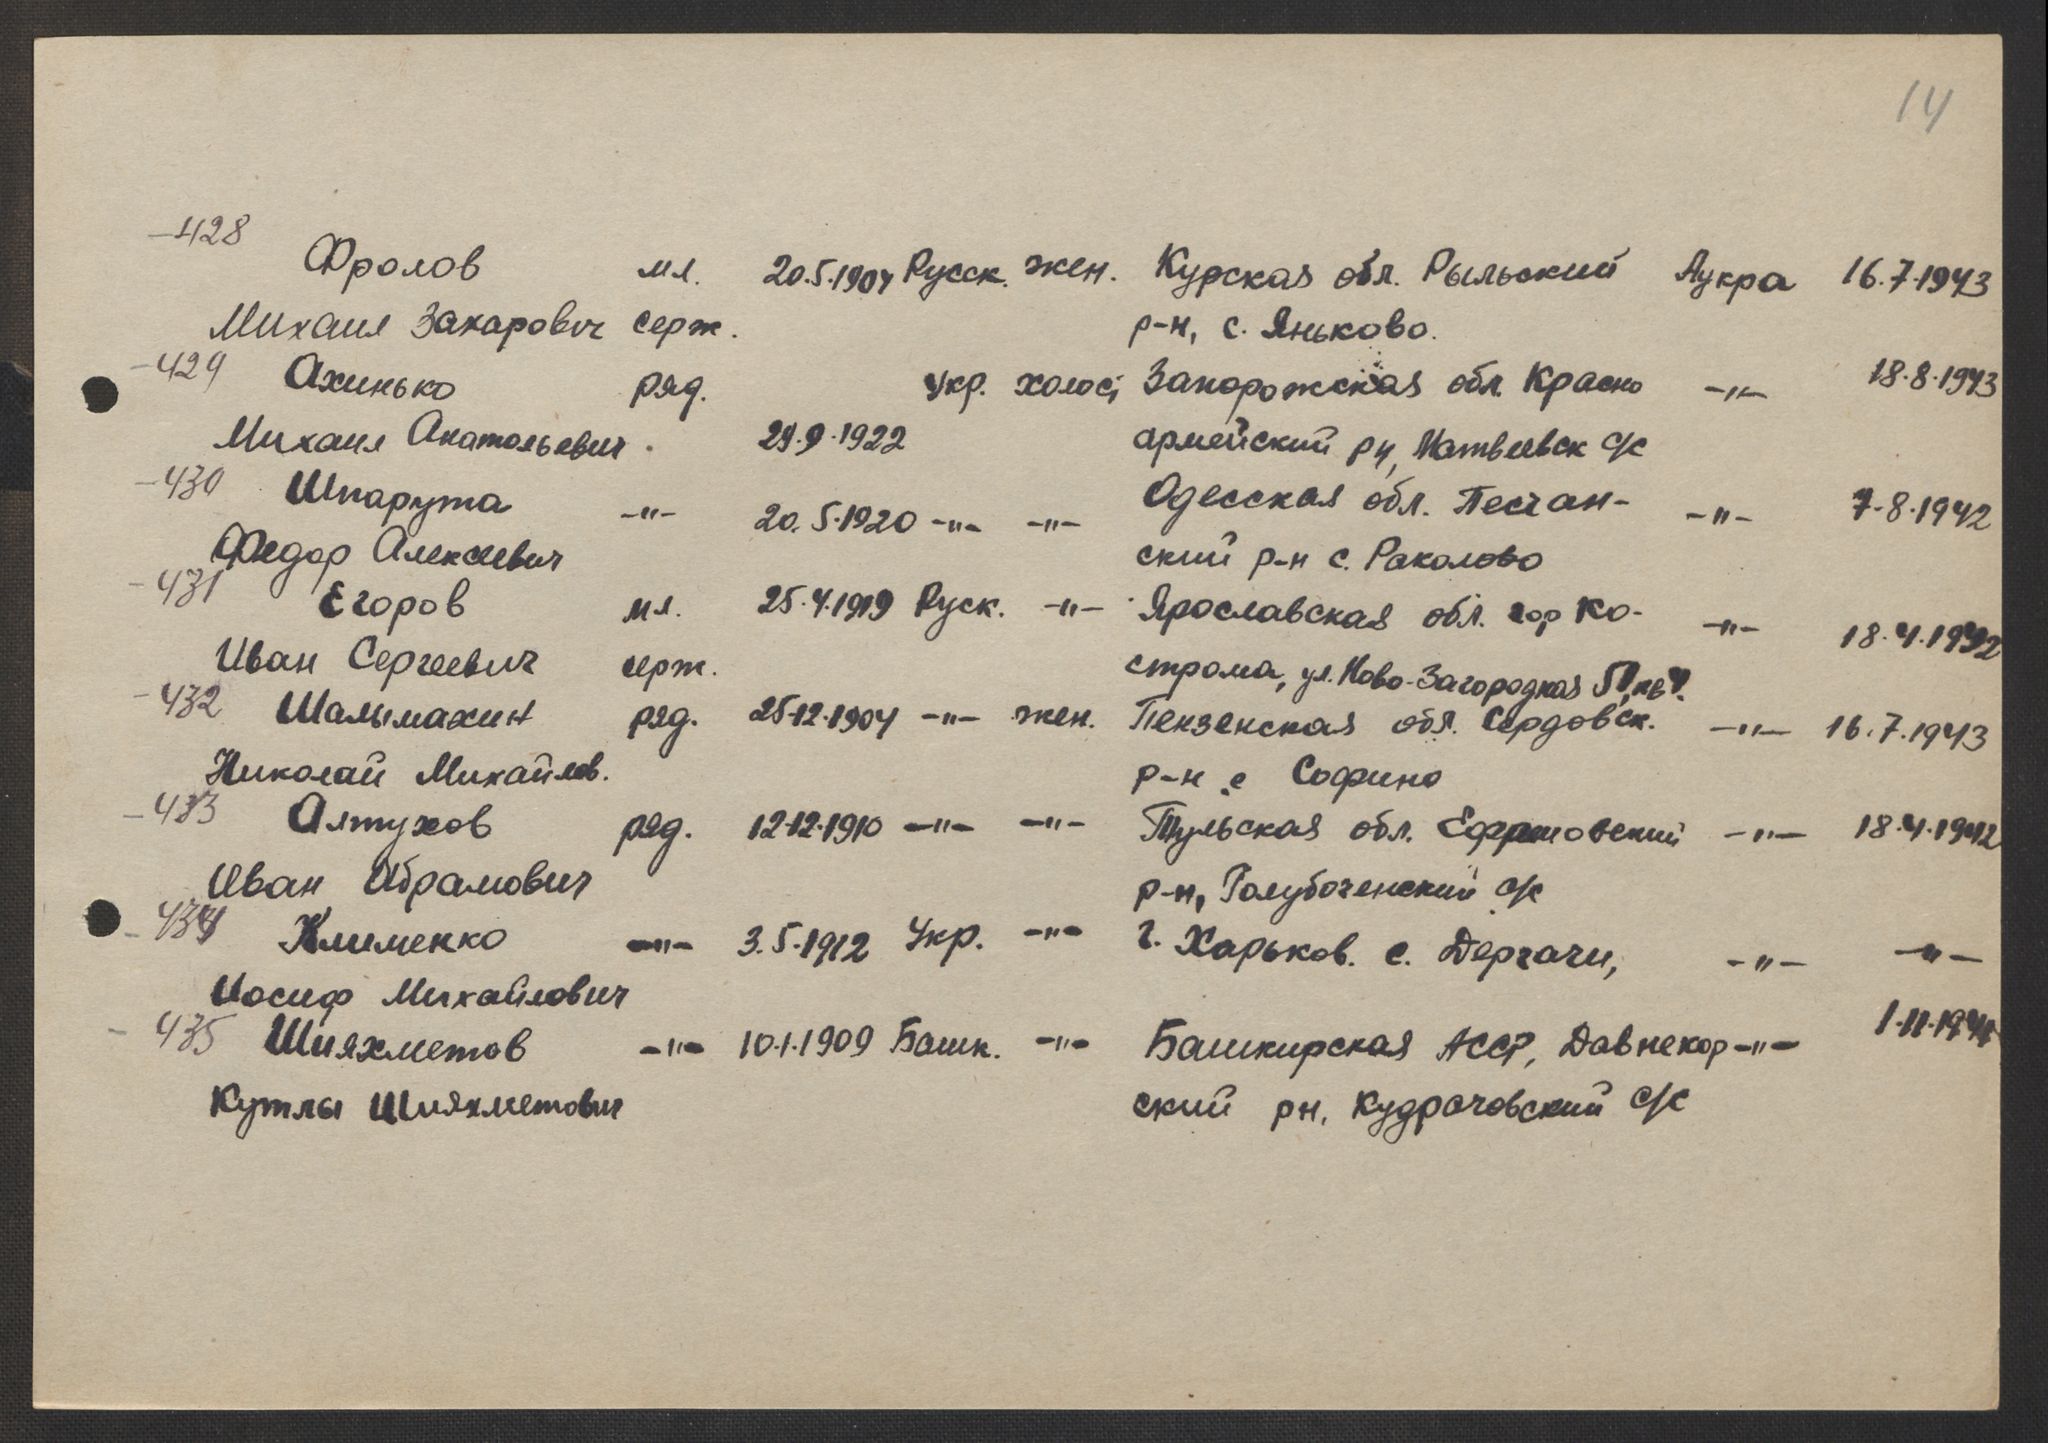 14
-428
Фролов мл. 20.5.1904 Русск. жен. Курская обл. Рыльский Лукра 16.7.1943
Михаил Захарович серж. р-н, с. Яньково.
-429 Ахинько ряд. Укр. холост Запорожская обл. Красно -"- 18.8.1943
Михаил Анатольевич. 24.9.1922 армейский рн, Матвеевск с/с
-430 Шпарута -"- 20.5.1920 -"- -"- Одесская обл. Песчан- -"- 7.8.1942
Федор Алексеевич ский р-н с. Раколово
-431 Егоров мл. 25.4.1919 Руск. -"- Ярославская обл. гор Ко- -"- 18.4.1942
Иван Сергеевич серж. строма, ул. Ново-Загородная
-432 Шалымахин ряд. 25.12.1904 -"- жен. Пензенская обл. Сердовск. -"- 16.7.1943
Николай Михайлов. р-н с Софино
-433 Алтухов ряд. 12.12.1910 -"- -"- Тульская обл. Ефремовский -"- 18.4.1942
Иван Абрамович р-н, Голубоченский с/с
-434 Клименко -"- 3.5.1912 Укр. -"- г. Харьков. с. Дергачи, -"- -"-
Иосиф Михайлович
-435 Шияхметов -"- 10.1.1909 Башк. -"- Башкирская АССР, Давнекор -"-
Кутлы Шияхметович ский рн, Кудрачовский с/с